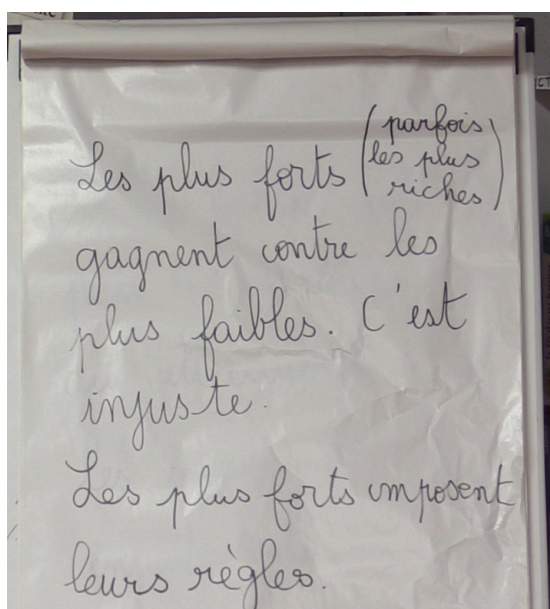 Les plus forts (parfois
les plus
riches)
gagnent contre les
plus faibles. C'est
injuste.
Les plus forts imposent
leurs règles.